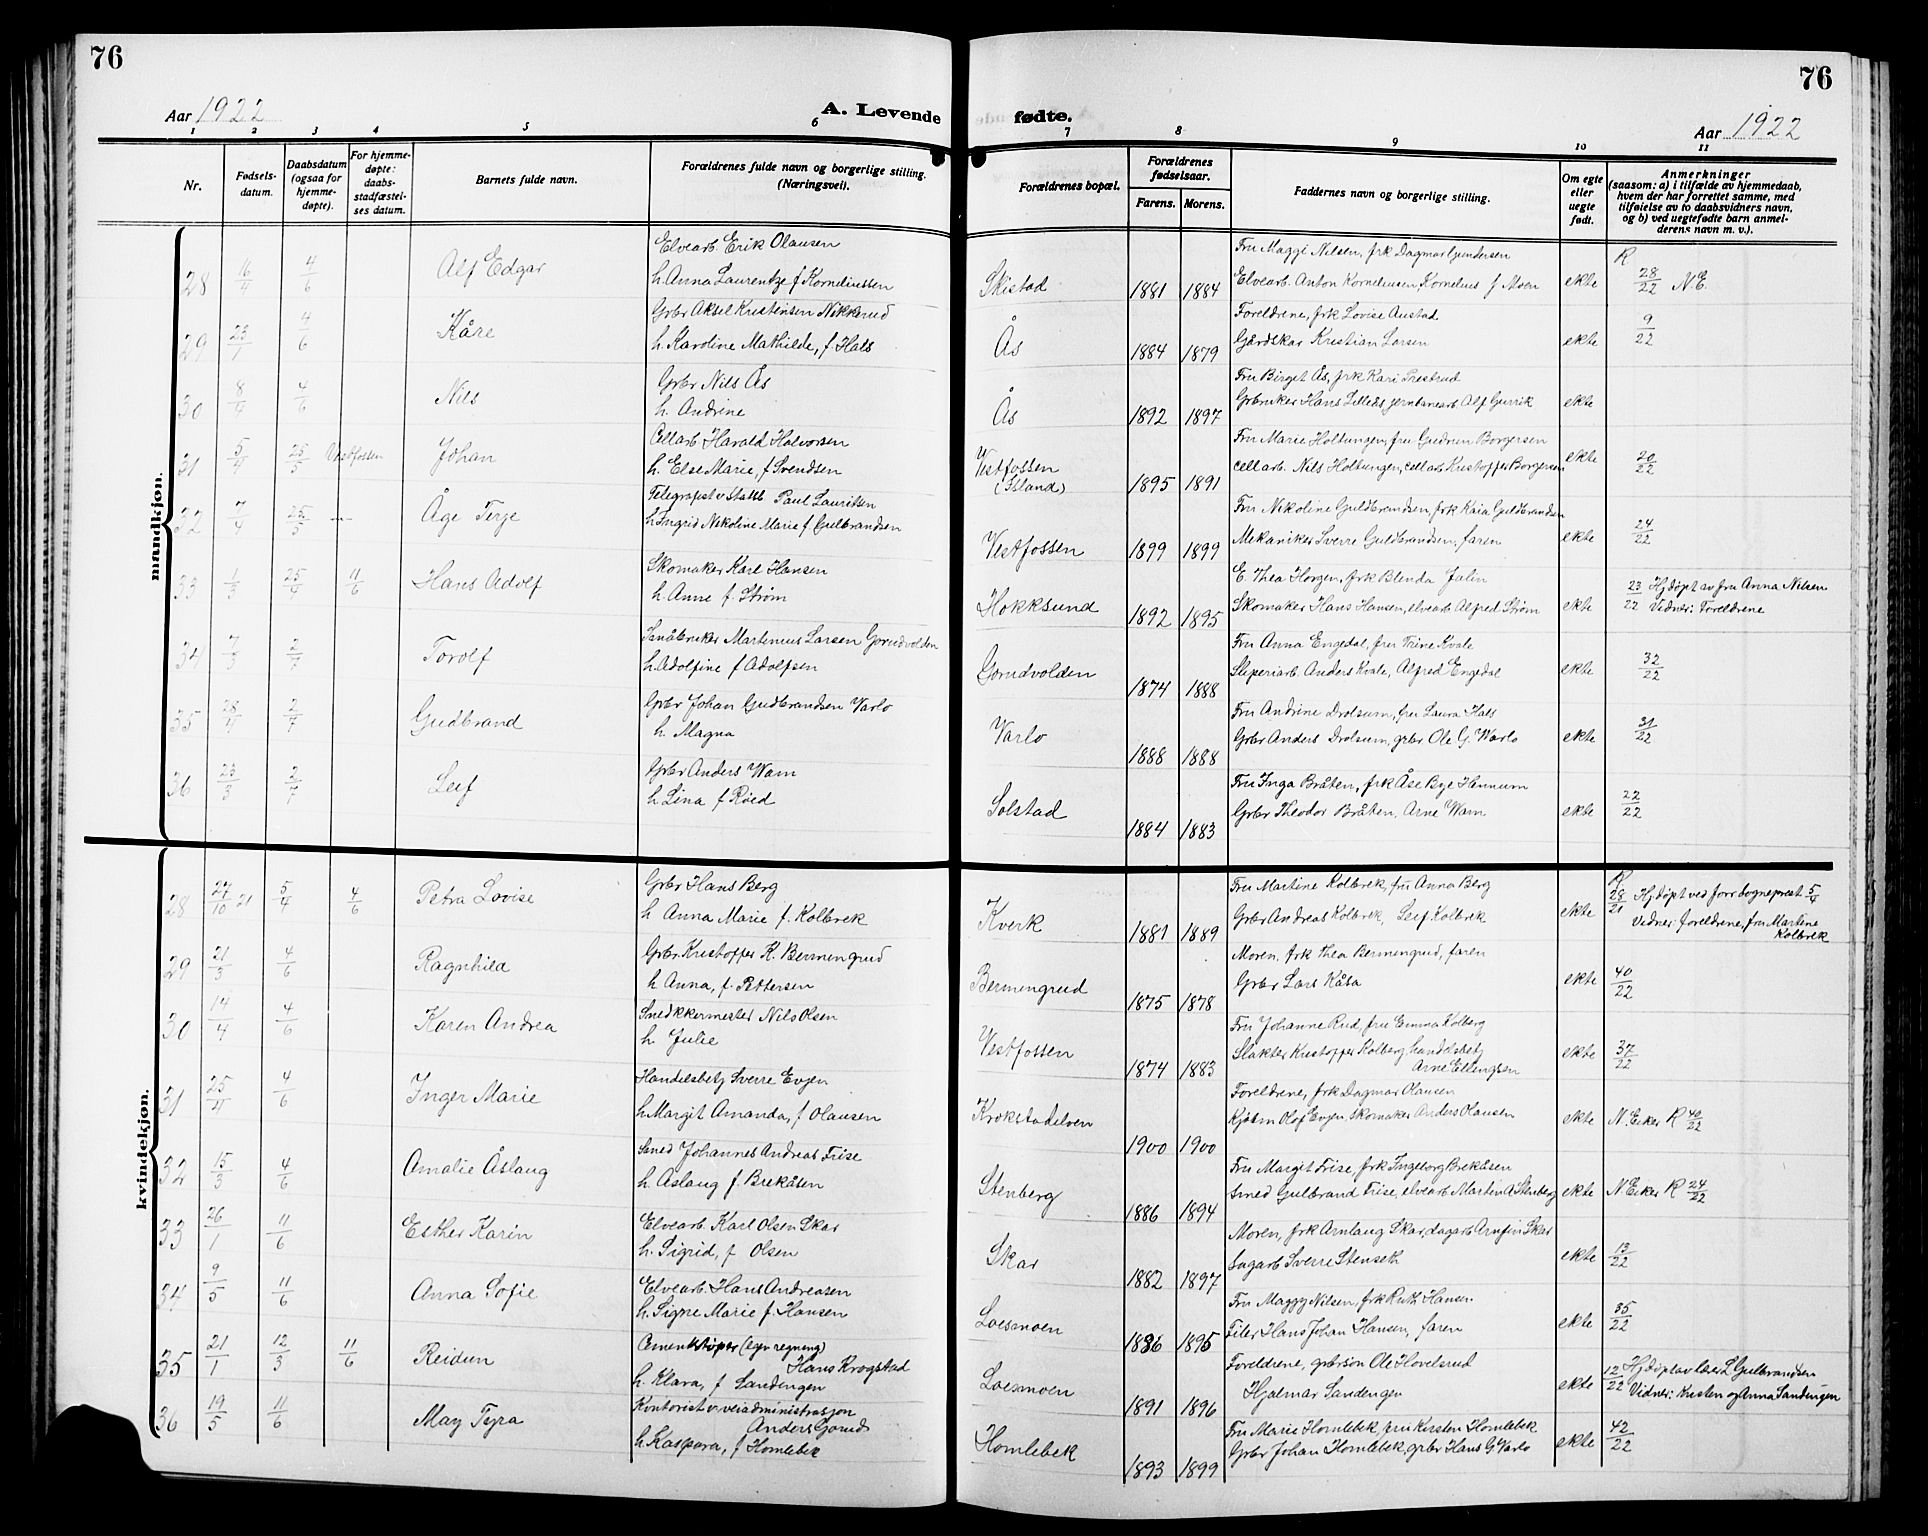 76
76
Aar 1922
A. Levende
fødte.
Aar 1922
1 2 3 4 5 6 7 8 9 10 11
Nr.
Fødsels-
datum.
Daabsdatum
(ogsaa for
hjemme-
døpte).
For hjemme-
døpte:
daabs-
stadfæstel-
ses datum.
Barnets fulde navn.
Forældrenes fulde navn og borgerlige stilling.
(Næringsvei).
Forældrenes bopæl.
Forældrenes
fødselsaar.
Farens. Morens.
Faddernes navn og borgerlige stilling.
Om egte
eller
uegte
født.
Anmerkninger
(saasom: a) i tilfælde av hjemmedaab,
hvem der har forrettet samme, med
tilføielse av to daabsvidners navn,
og b) ved uegtefødte barn anmel-
derens navn m. v.).
mandkjøn.
28 16/4 4/6 Alf Edgar
Elvearb Erik Olausen
h. Anna Laurentze f Korneliussen
Skistad 1881 1884
Fru Maggi Nilsen, frk Dagmar Gundersen
Elvearb. Anton Korneliusen, Kornelius f Moen
ekte R 28/22 N.E.
29 23/1 4/6 Kåre
Grbr Aksel Kristensen Nikkerud
h. Karoline Mathilde, f. Hals
Ås 1884 1879
Foreldrene, frk Lovise Austad
Gårdskar Kristian Larsen
ekte 9/22
30 8/4 4/6 Nils
Grbr Nils Ås
h. Andrine
Ås 1892 1897
Fru Birgit Ås, frk Kari Prestrud
Grbruker Hans Lilleås, jernbanearb Alf Gurrik
ekte
31 5/4 25/5 Vestfossen Johan
Cellarb Harald Halvorsen
h. Else Marie, f Svendsen
Vestfossen
(Island) 1895 1891
Fru Marie Holtungen, fru Gudrun Borgersen
cellarb. Nils Holtungen, cellarb Kristoffer Borgersen
ekte 20/22
32 7/4 25/5 — Åge Terje
Telegrafist v Statsb Paul Lauritsen
h Ingrid Nikoline Marie f Gulbrandsen
Vestfossen 1899 1899
Fru Nikoline Guldbrandsen, frk Kaia Guldbrandsen
Mekaniker Sverre Guldbrandsen, faren
ekte 24/22
33 1/3 25/4 11/6 Hans Adolf
Skomaker Karl Hansen
h. Anne f. Strøm
Hokksund 1892 1895
E. Thea Horgen, frk Blenda Jalin
Skomaker Hans Hansen, elvearb Alfred Strøm
ekte 23/22 Hjdøpt av fru Anna Nilsen
Vidner: Foreldrene
34 7/3 2/7 Torolf
Småbruker Martinius Larsen Gorudvolden
h. Adolfine f Adolfsen
Gorudvolden 1874 1888
Fru Anna Engedal, fru Trine Kvale
Sliperiarb. Anders Kvale, Alfred Engedal
ekte 32/22
35 28/4 2/7 Gudbrand
Grbr Johan Gudbrandsen Varlo
h. Magna
Varlo 1888 1888
Fru Andrine Drolsum, fru Laura Hals
Grbr Anders Drolsum, grbr Ole G. Varlo
ekte 31/22
36 23/3 2/7 Leif
Grbr Anders Wam
h Lina f Röed
Solstad 1884 1883
Fru Inga Bråten, frk Åse Bye Hennum
Grbr Theodor Bråten, Arne Wam
ekte 22/22
kvindekjøn.
28 27/10 21 5/4 4/6 Petra Lovise
Grbr Hans Berg
h Anna Marie f. Kolbrek
Kverk 1881 1889
Fru Martine Kolbrek, fru Anna Berg
Grbr Andreas Kolbrek, Leif Kolbrek
ekte R 28/21 Hjdøpt ved forr sogneprest 5/4
Vidner: foreldrene, fru Martine
Kolbrek
29 21/3 4/6 Ragnhild
Grbr Kristoffer K. Bermengrud
h Anna, f. Pettersen
Bermengrud 1875 1878
Moren, frk Thea Bermengrud, faren
Grbr Lars Kåsa
ekte 40/22
30 14/4 4/6 Karen Andrea
Snedkkermester Nils Olsen
h. Julie
Vestfossen 1874 1883
Fru Johanne Rud, fru Emma Kolberg
Slakter Kristoffer Kolberg, handelsbetj
Arne Ellingsen
ekte 37/22
31 25/4 4/6 Inger Marie
Handelsbetj Sverre Evjen
h. Margit Amanda, f Olausen
Krokstadelven 1900 1900
Foreldrene, frk Dagmar Olausen
Kjøbm Olof Evjen, skomaker Anders Olausen
ekte N. Eiker R 40/22
32 15/3 4/6 Amalie Åslaug
Smed Johannes Andreas Frise
h. Aslaug f Brekåsen
Stenberg 1886 1894
Fru Margit Frise, frk Ingeborg Brekåsen
Smed Gulbrand Frise, elvearb Martin A Stenberg
ekte N Eiker R 24/22
33 26/1 11/6 Esther Karin
Elvearb. Karl Olsen Skar
h. Sigrid, f Olsen
Skar 1882 1897
Moren, frk Arnlaug Skar, dagarb Arnfin Skar
Sagarb Sverre Stenseth
ekte 13/22
34 9/5 11/6 Anna Sofie
Elvearb. Hans Andreasen
h. Signe Marie f. Hansen
Loesmoen 1886 1895
Fru Maggy Nilsen, frk Ruth Hansen
Filer Hans Johan Hansen, faren
ekte 35/22
35 21/1 12/3 11/6 Reidun
Cementstøper (egn regning)
Hans Krogstad
h. Klara, f Sandengen
Loesmoen 1891 1896
Foreldrene, grbrsön Ole Hovelsrud
Hjalmar Sandengen
ekte 12/22 Hjdøpt av lærer L Gulbrandsen
Vidner: Kristen og Anna Sandengen
36 19/5 11/6 May Tyra
Kontorist v veiadministrasjon
Anders Gorud
h. Kaspara, f Homlebek
Homlebek 1893 1899
Fru Marie Homlebek, fru Kirsten Homlebek
Grbr Johan Homlebek, grbr Hans G. Varlo
ekte 42/22